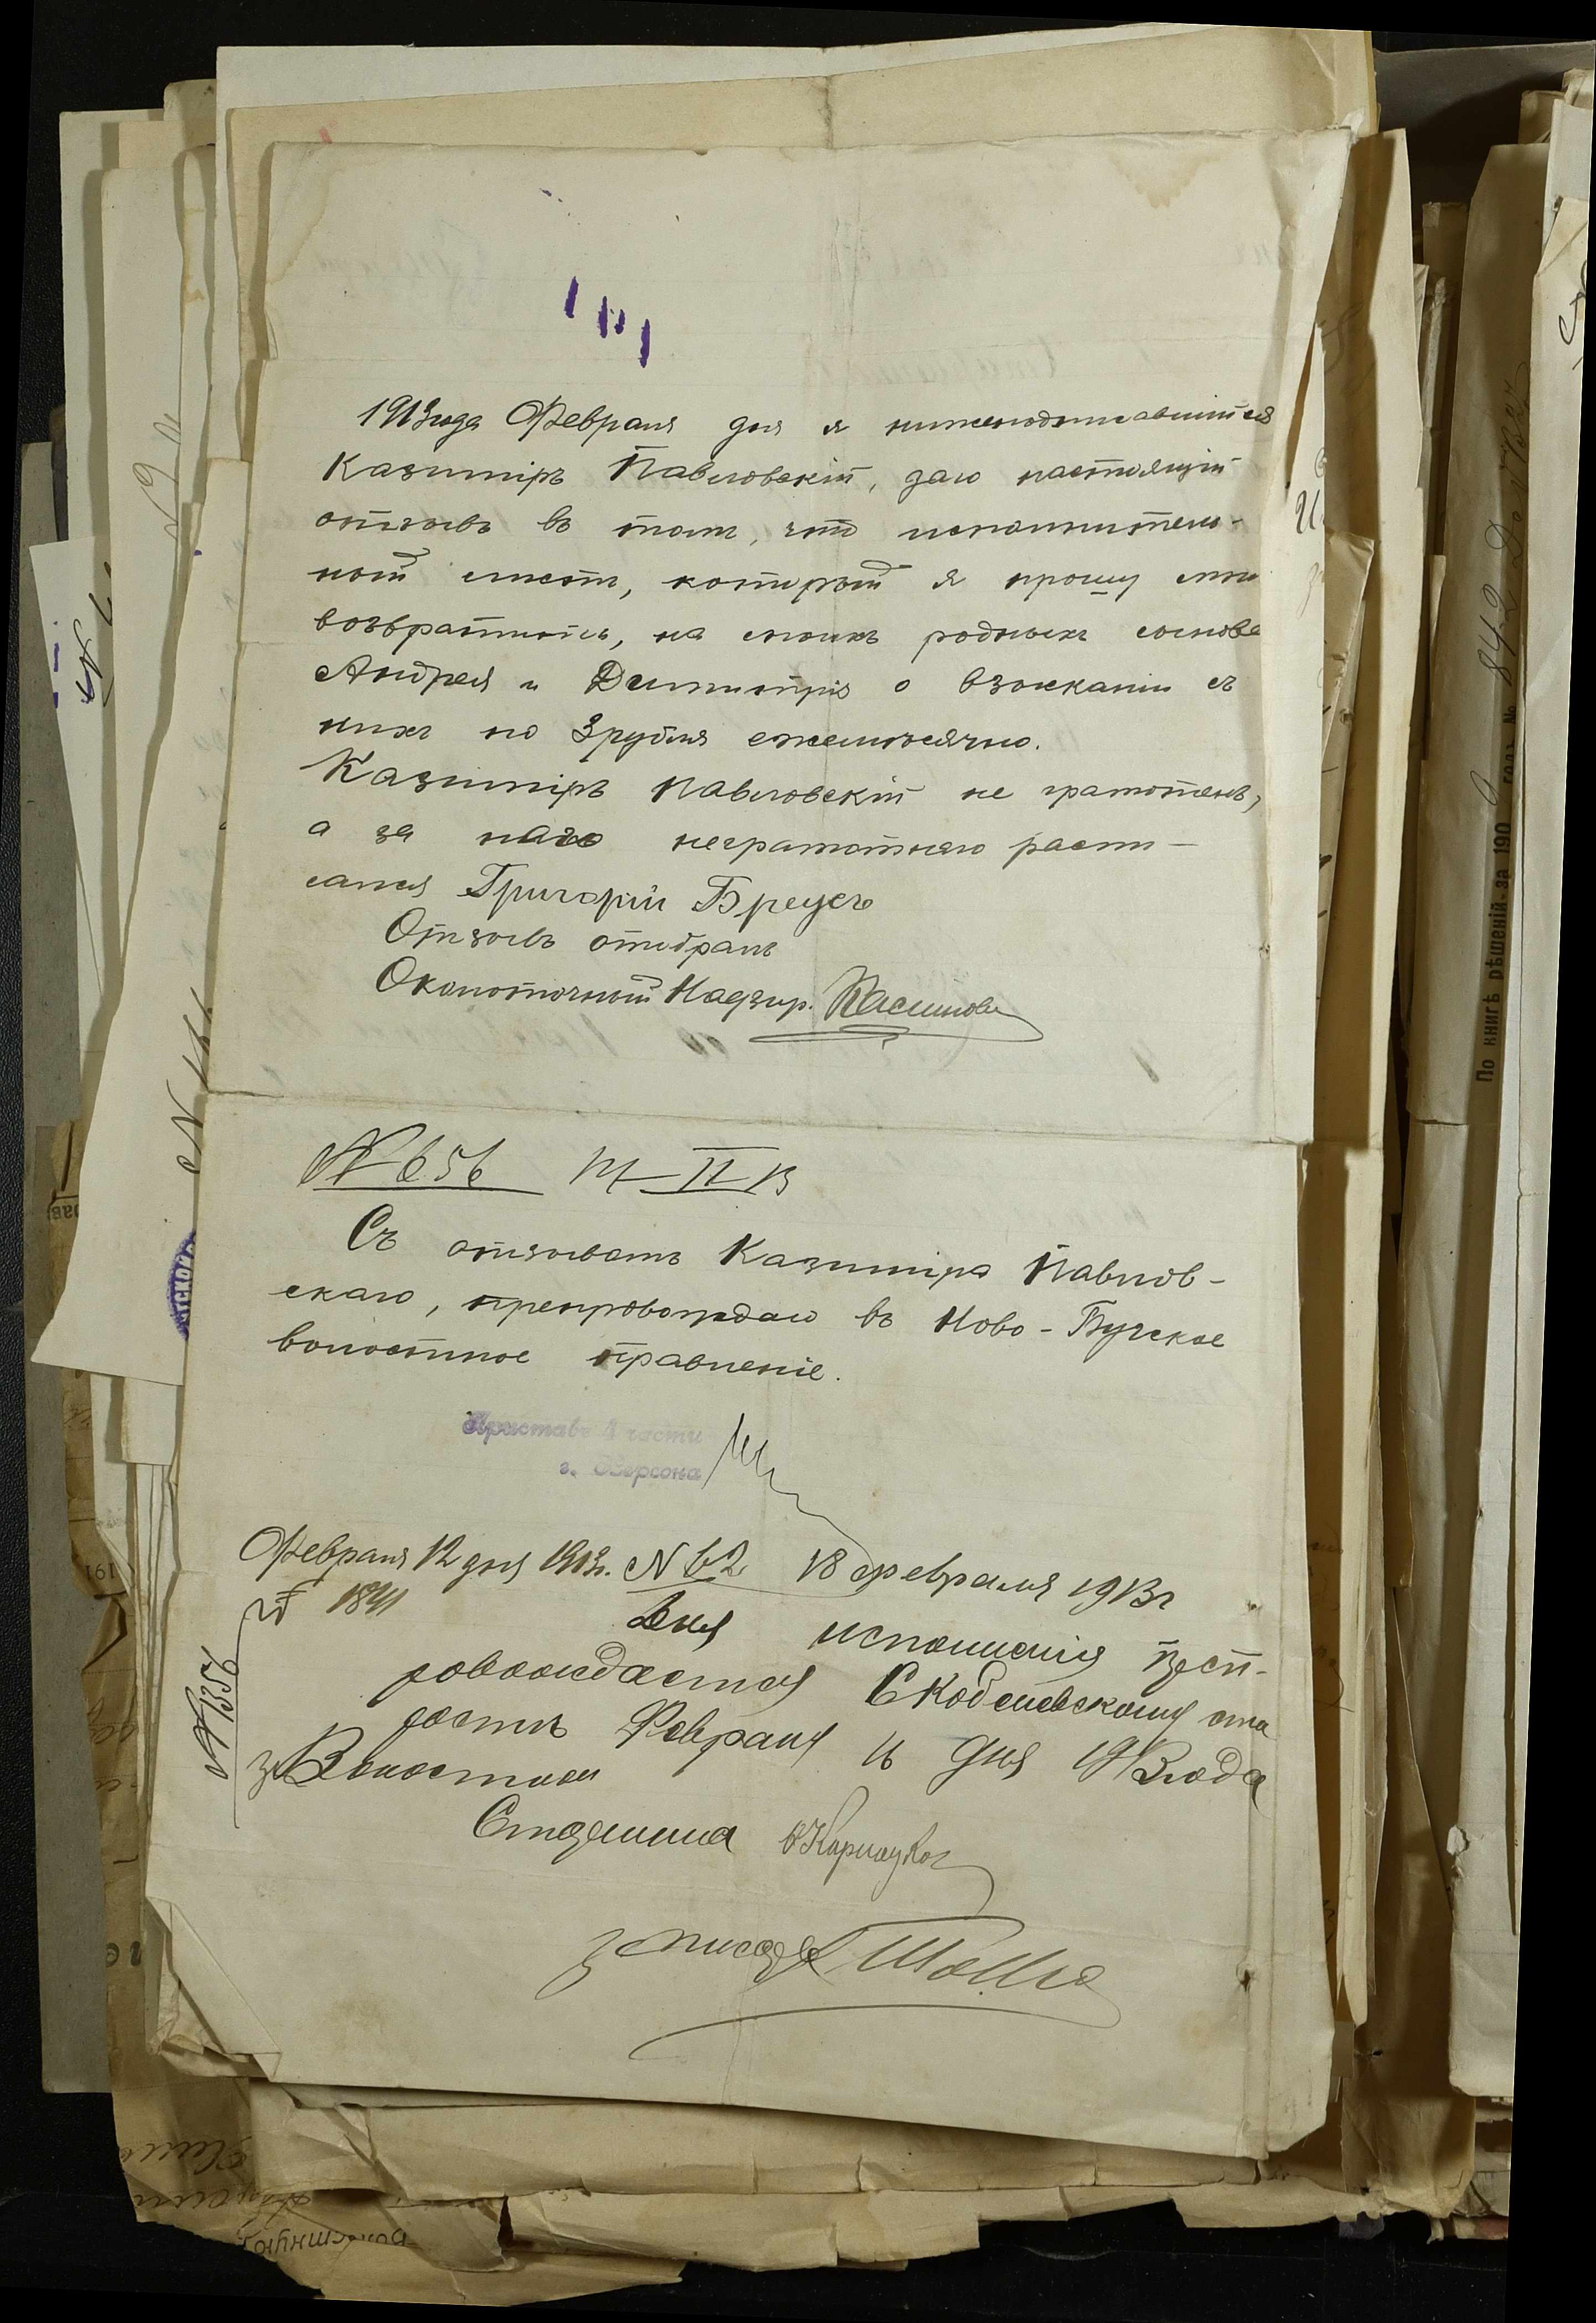 1913 года Февраля дня я нижеподписавшийся
Казимiръ Павловскiй, даю настоящiй
отзывъ въ томъ, что исполнитель-
ный листъ, который я прошу мнѣ
возвратить, на моихъ родныхъ сынове
Андрея и Димитрiя о взысканiи съ
нихъ по 3 рубля ежемѣсячно.
Казимiръ Павловскiй не грамотенъ,
а за него неграмотнаго распи-
сался Григорiй Бреусъ
Отзывъ отобралъ
Околоточный Надзир.
№ 656 II 13
Съ отзывомъ Казимiра Павлов-
скаго, препровождаю въ Ново-Бугское
волостное правленiе.
Приставъ 1 части
г. Херсона
Февраля 12 дня 1913 г. № 62 18 февраля 1913 г
1841
Для исполненiя преп-
ровождается Скобелевскому ста
ростѣ Февраля 16 дня 1913 года
№ 1356
за Волостной
Старшина
за писаря
По книгѣ рѣшенiй за 190 годъ №